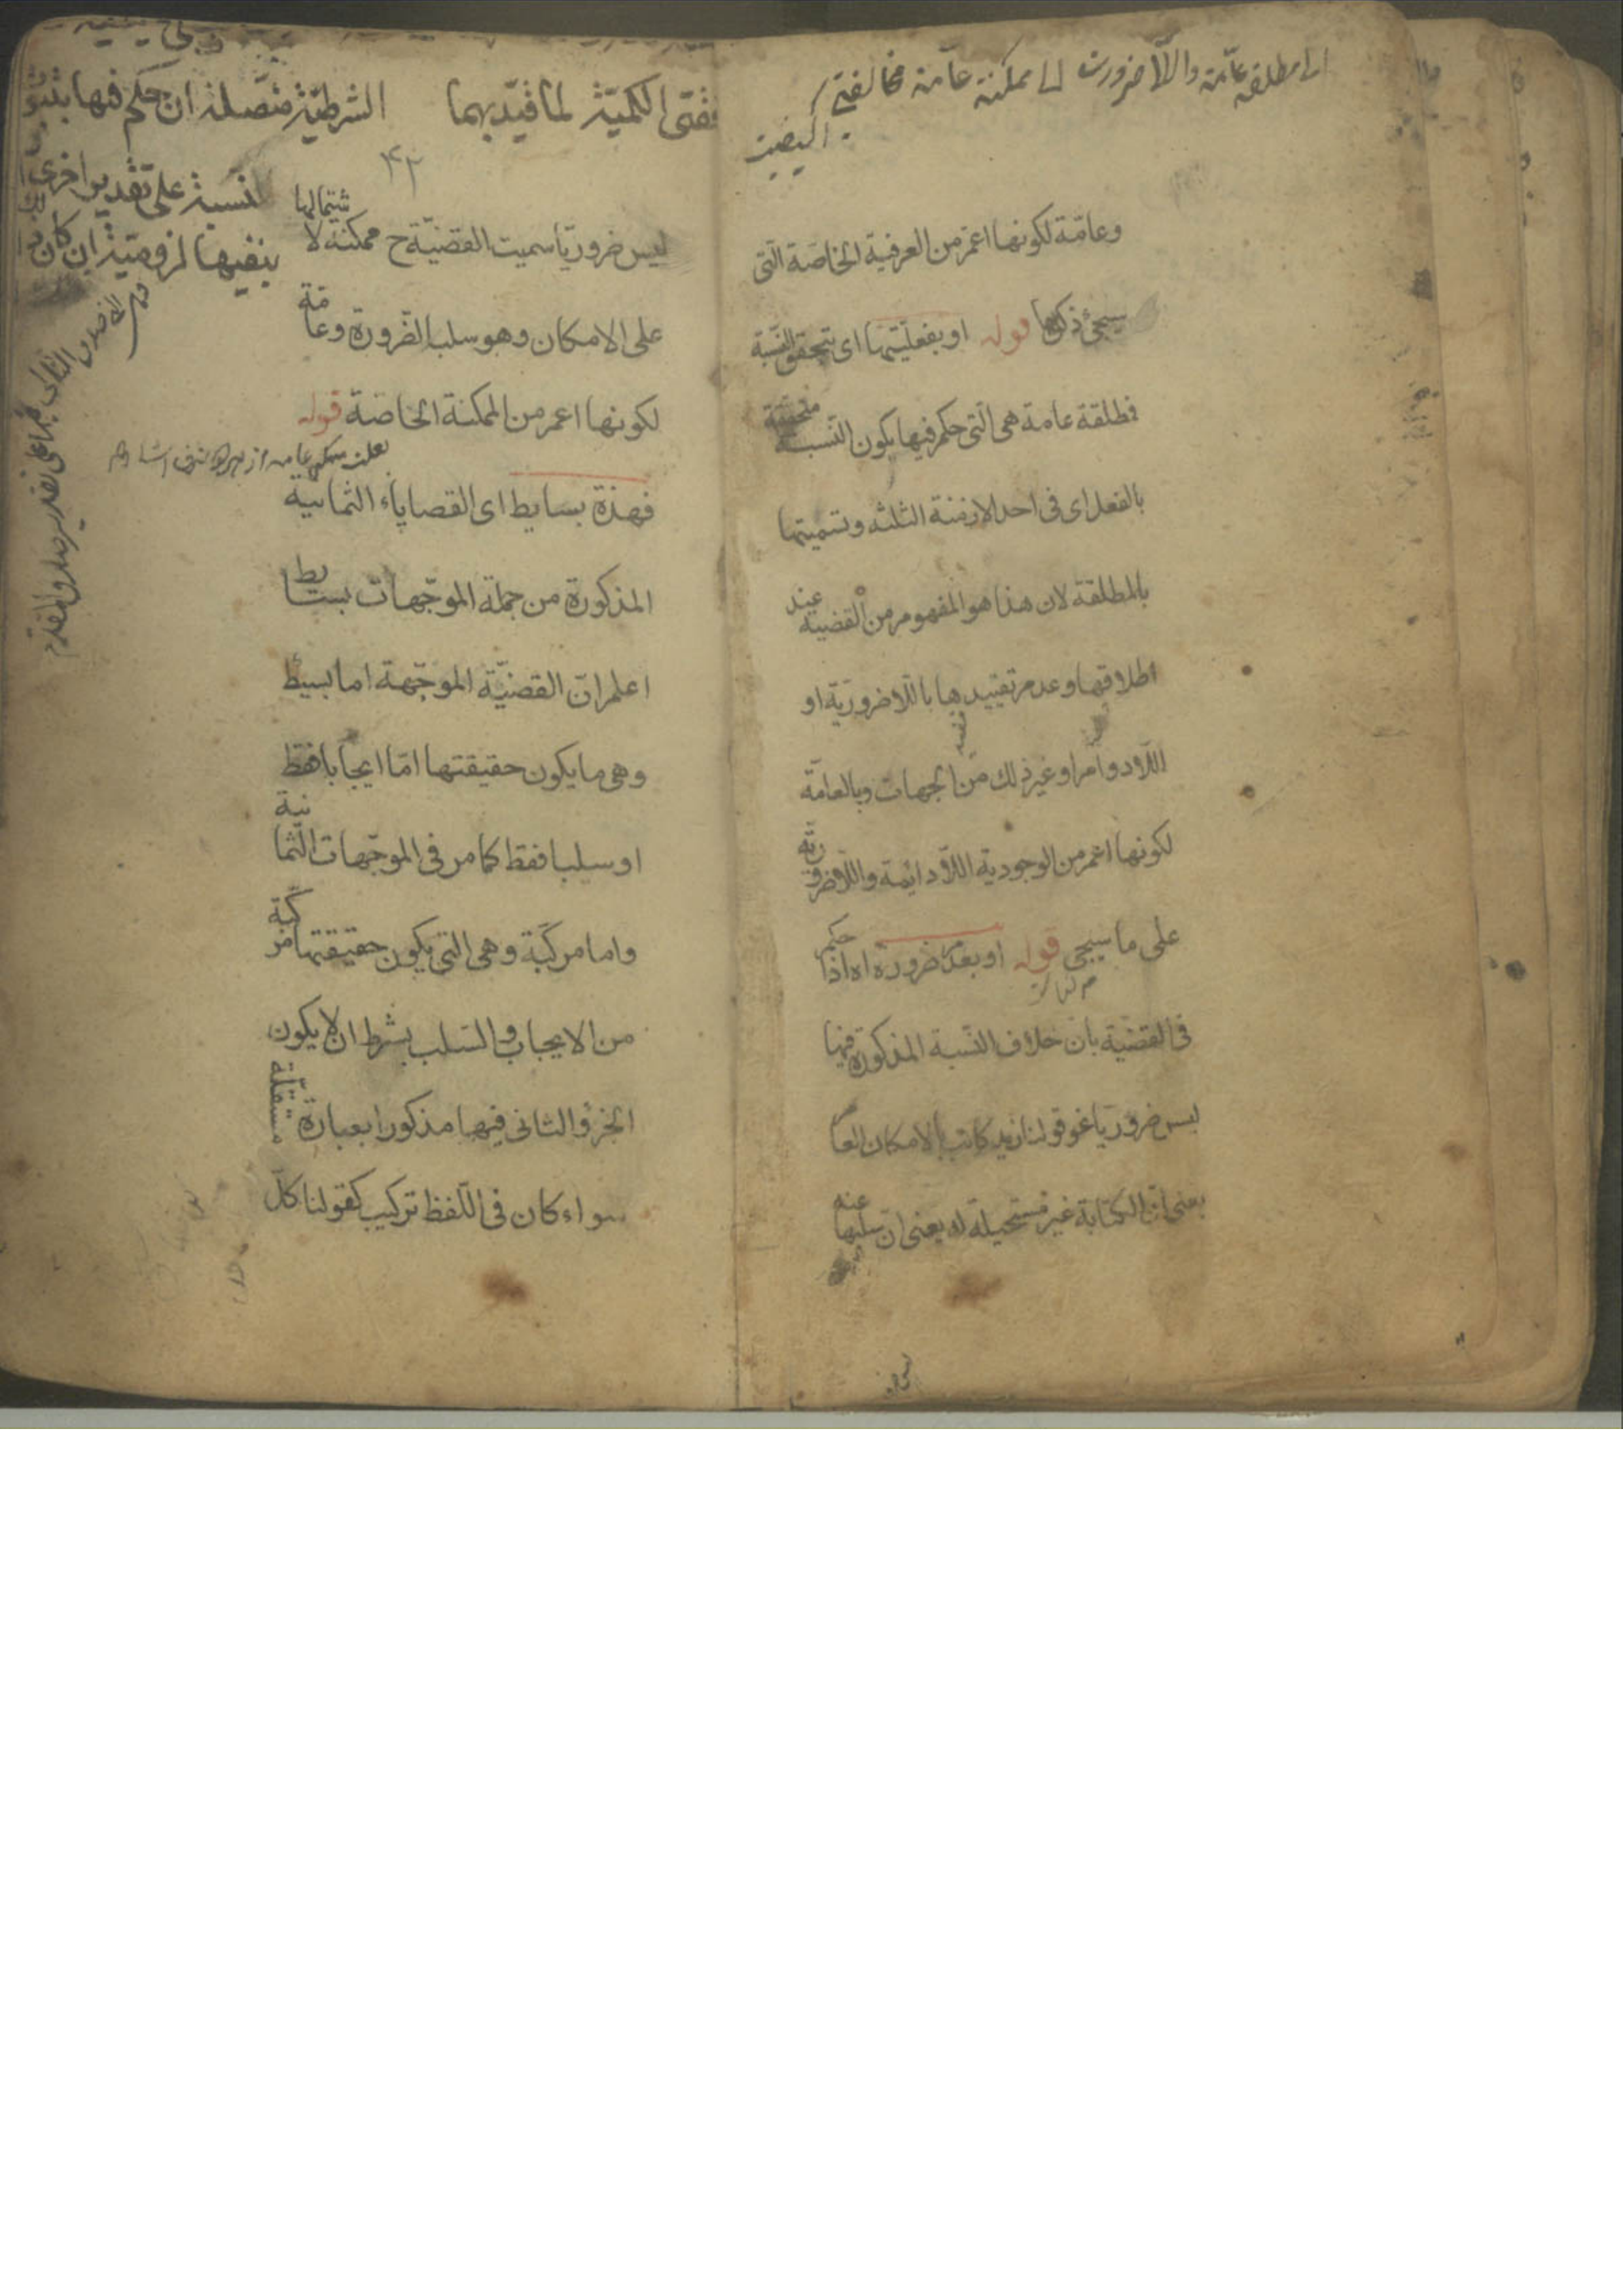 الى مطلقة عامة واللاضرورت الى ممكنة عامة مخالفتى
الكيفيت
وعامة لكونها اعم من العرفية الخاصة التى
سيجئ ذكرها قوله او بفعليتها اى تتحقق النسبة
فمطلقة عامة هى التى حكم فيها بكون النسبة متحققة
بالفعل اى فى احد الازمنة الثلثه وتسميتها
بالمطلقة لان هذا هو المفهوم من القضية عند
اطلاقها وعدم تقييدها باللاضرورية او
اللادوام او غير ذلك من الجهات وبالعامة
لكونها اعم من الوجودية اللادائمة واللاضرورية
على ما سيجى قوله او بعدم ضرورة اه اذا حكم
فى القضية بان خلاف النسبة المذكورة فيها
ليس ضروريا نحو قولنا زيد كاتب بالامكان العام
بمعنى ان الكتابة غير مستحيلة له يعنى ان سلبها عنه
فقتى الكمية لما قيد بهما
الشرطية متصلة ان حكم فيها بثبوت
نسبة على تقدير اخرى
بنفيها لزومية ان كان
۴۲
ليس ضروريا سميت القضية ح ممكنة لاشتمالها
على الامكان وهو سلب الضرورة وعامة
لكونها اعم من الممكنة الخاصة قوله
فهذة بسايط اى القصاياء الثمانية
المذكورة من جملة الموجهات بسايط
اعلم ان القضية الموجهة اما بسيط
وهى ما يكون حقيقتها اما ايجابا فقط
او سلبا فقط كما مر فى الموجهات الثمانية
واما مركبة وهى التى يكون حقيقتها مركبة
من الايجاب والسلب بشرط ان لا يكون
الجزؤ الثانى فيها مذكورا بعبارة مستقلة
سواء كان فى اللفظ تركيب كقولنا كل